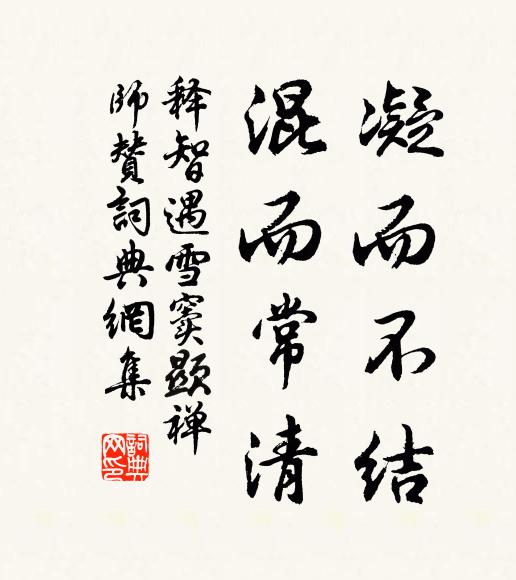 凝而不结
混而常清
释智遇雪窦显禅
师赞词典網集
詞典
网印